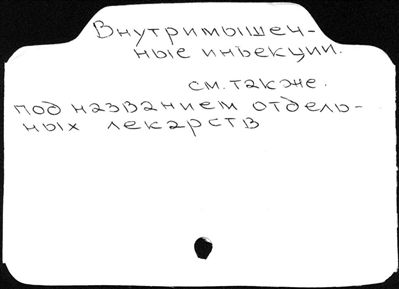 Внутримышеч-
ные инъекции.
см. также.
под названием отдель-
ных лекарств